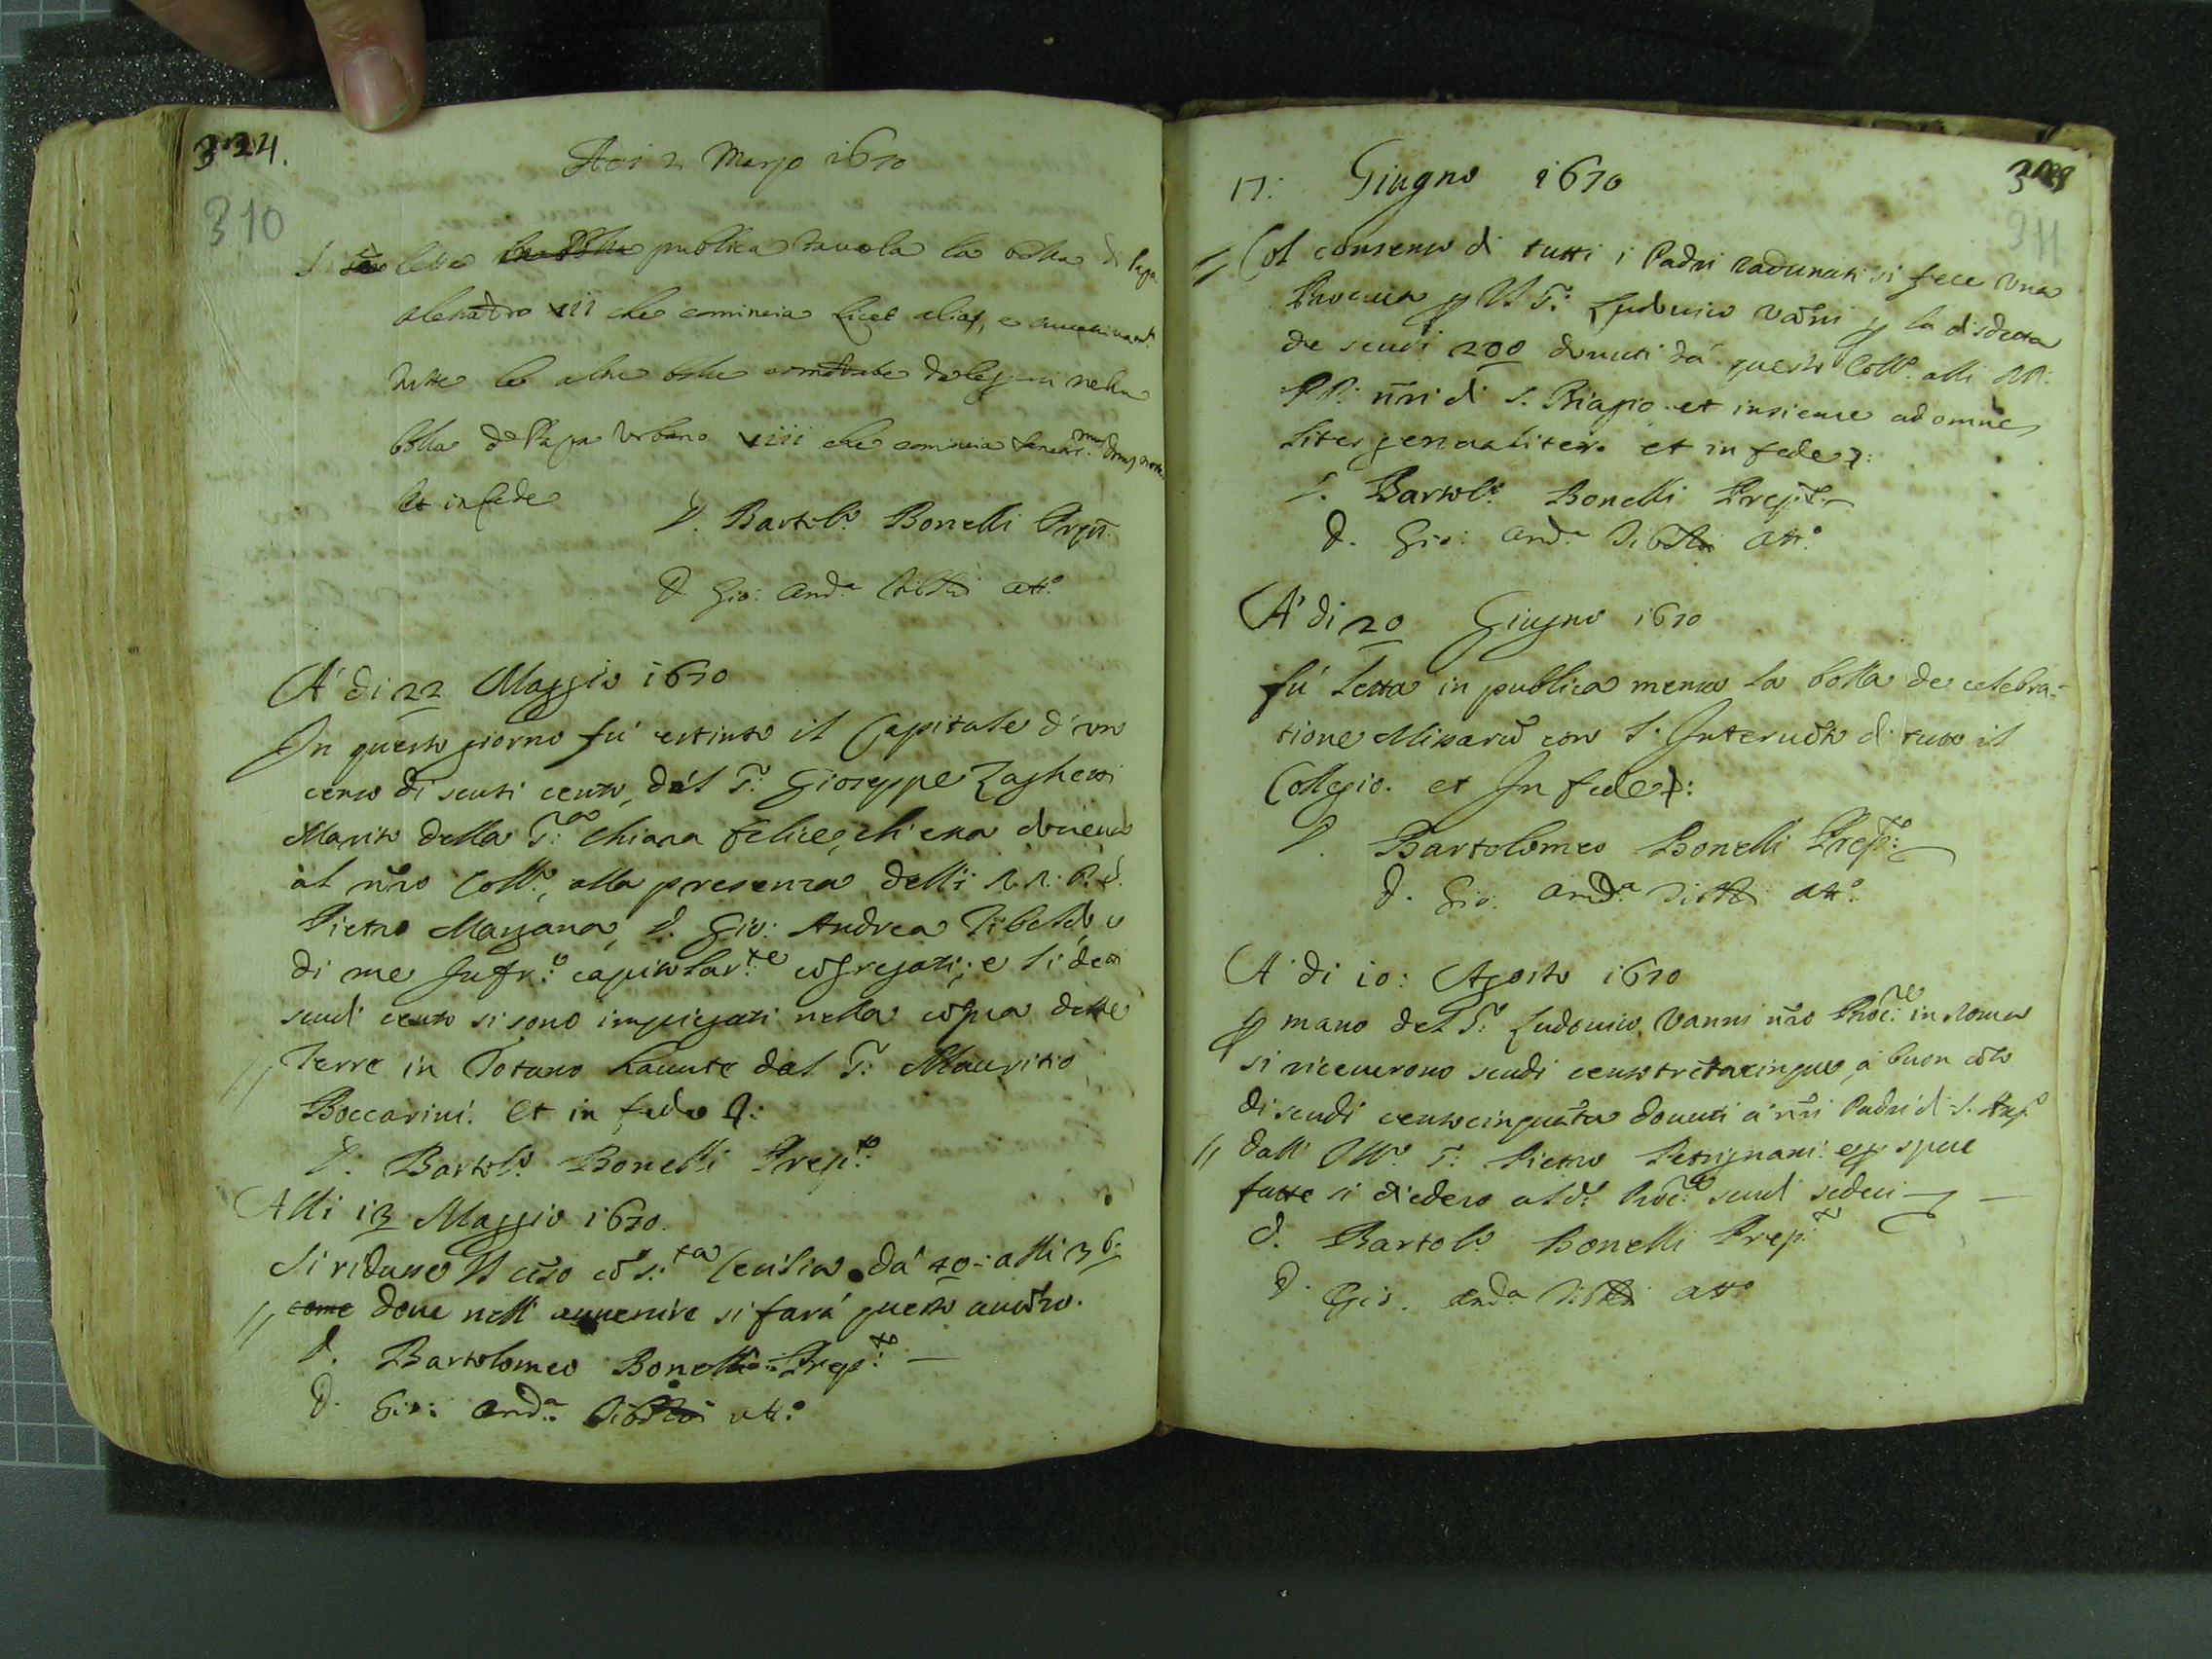 324.
310
Adi 2 Marzo 1670
Si è letta publica tavola la bolla di Papa
Alesādro vii che comincia Licet alias, e
tutte le altre bolle da leggersi nella
bolla di Papa Urbano viii che comincia
Et in fede
D. Bartol.o Bonelli Prep.to
D. Gio: And.a Att.o
A' di 22 Maggio 1670
In questo giorno fu' estinto il Capitale d'un
censo di scuti cento, dal S.r Gioseppe Zaghetti
Marito della S.ra Chiara Felice, ch'era
al nr̃o Coll.o, alla presenza delli R.R. P. D.
Pietro Manzana, D. Gio: Andrea Tibeldi, e
di me Infr.o capitolar.te cōgregati; e li detti
scudi cento si sono impiegati nella cōpra delle
Terre in Totano havute dal S.r Mauritio
Boccarini. Et in fede &:
D. Bartol.o Bonelli Prep.to
Alli 13 Maggio 1670.
Si ridusse Il cēso cō S.ta Cecilia da 40 alli 36
come dove nell' avvenire si farà questo
D. Bartolomeo Bonelli Prep.to
D. Gio: And.a Att.o
17: Giugno 1670
311
Col consenso di tutti i Padri radunati si fece una
Procura p Il S.r Ludovico Vañi p la disdetta
de scudi 200 dovuti da questo Coll.o alli RR:
PP. nr̃i di S. Biagio et insieme ad omnes
lites generaliter. et in fede &:
D. Bartol.o Bonelli Prep.to
D. Gio: And.a Att.o
A' di 20 Giugno 1670
fu' letta in publica mensa la bolla de celebra-
tione Missarũ con l'Intervēto di tutto il
Collegio. et In fede &:
D. Bartolomeo Bonelli Prep.to
D. Gio. And.a Att.o
A' di 10: Agosto 1670
p mano del S.r Ludovico Vanni nr̃o Proc.re in Roma
si riceverono scudi centotrētacinque, à buon cōto
di scudi centocinquāta dovuti a' nr̃i Padri di S.
dall' Ill.o S.r Pietro Petrignani. e p spese
fatte si diedero al d.o Proc.re scudi sedeci
D. Bartol.o Bonelli Prep.to
D. Gio. And.a Att.o